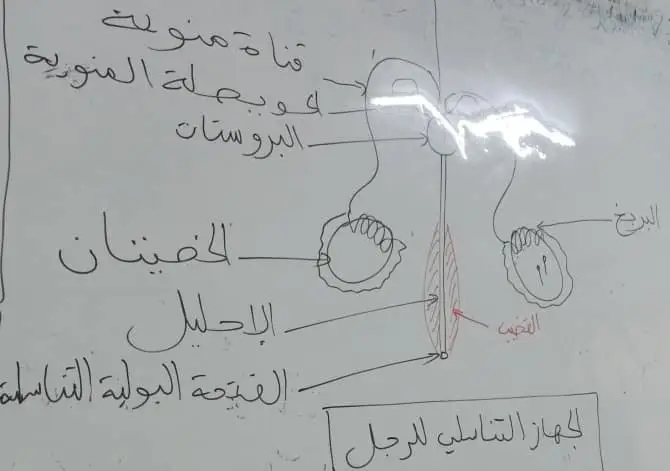 قناة منوية
لحويصلة المنوية
البروستات
البربخ
الخصيتان
الإحليل
القضيب
الفتحة البولية التناسلية
لجهاز التناسلي للرجل